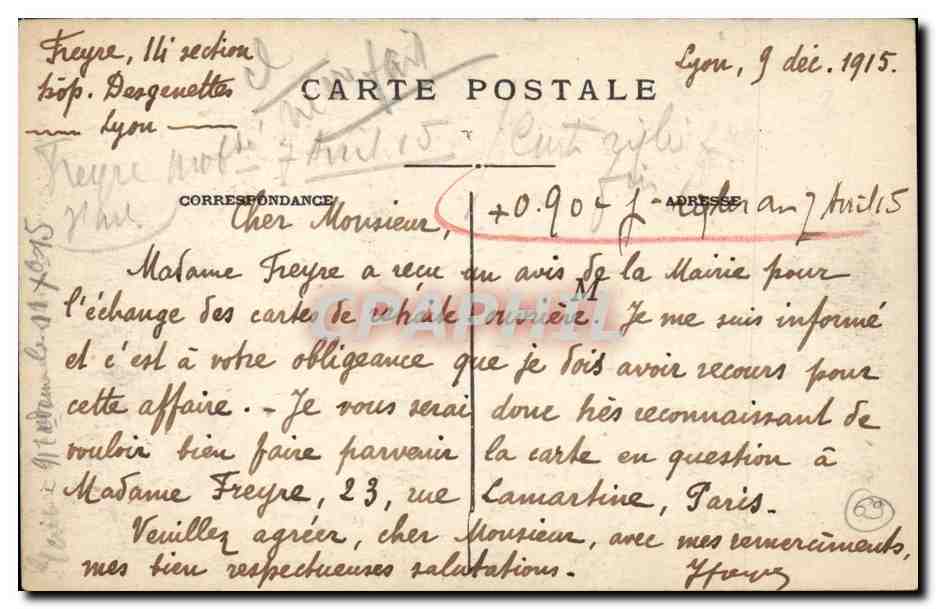 Freyre, 14 section
hôp. Desgenettes
Lyon
Lyon, 9 déc. 1915.
CARTE POSTALE
Freyre 7 Avril 15
CORRESPONDANCE
ADRESSE
+0.90 7 Avril 15
Cher Monsieur,
Madame Freyre a reçu un avis de la Mairie pour
M
l'échange des cartes de retraite ouvrière. Je me suis informé
CPAPHIL
et c'est à votre obligeance que je dois avoir recours pour
cette affaire. - Je vous serai donc très reconnaissant de
vouloir bien faire parvenir la carte en question à
Madame Freyre, 23, rue Lamartine, Paris.
Veuillez agréer, cher Monsieur, avec mes remerciments,
mes bien respectueuses salutations.
Freyre
69